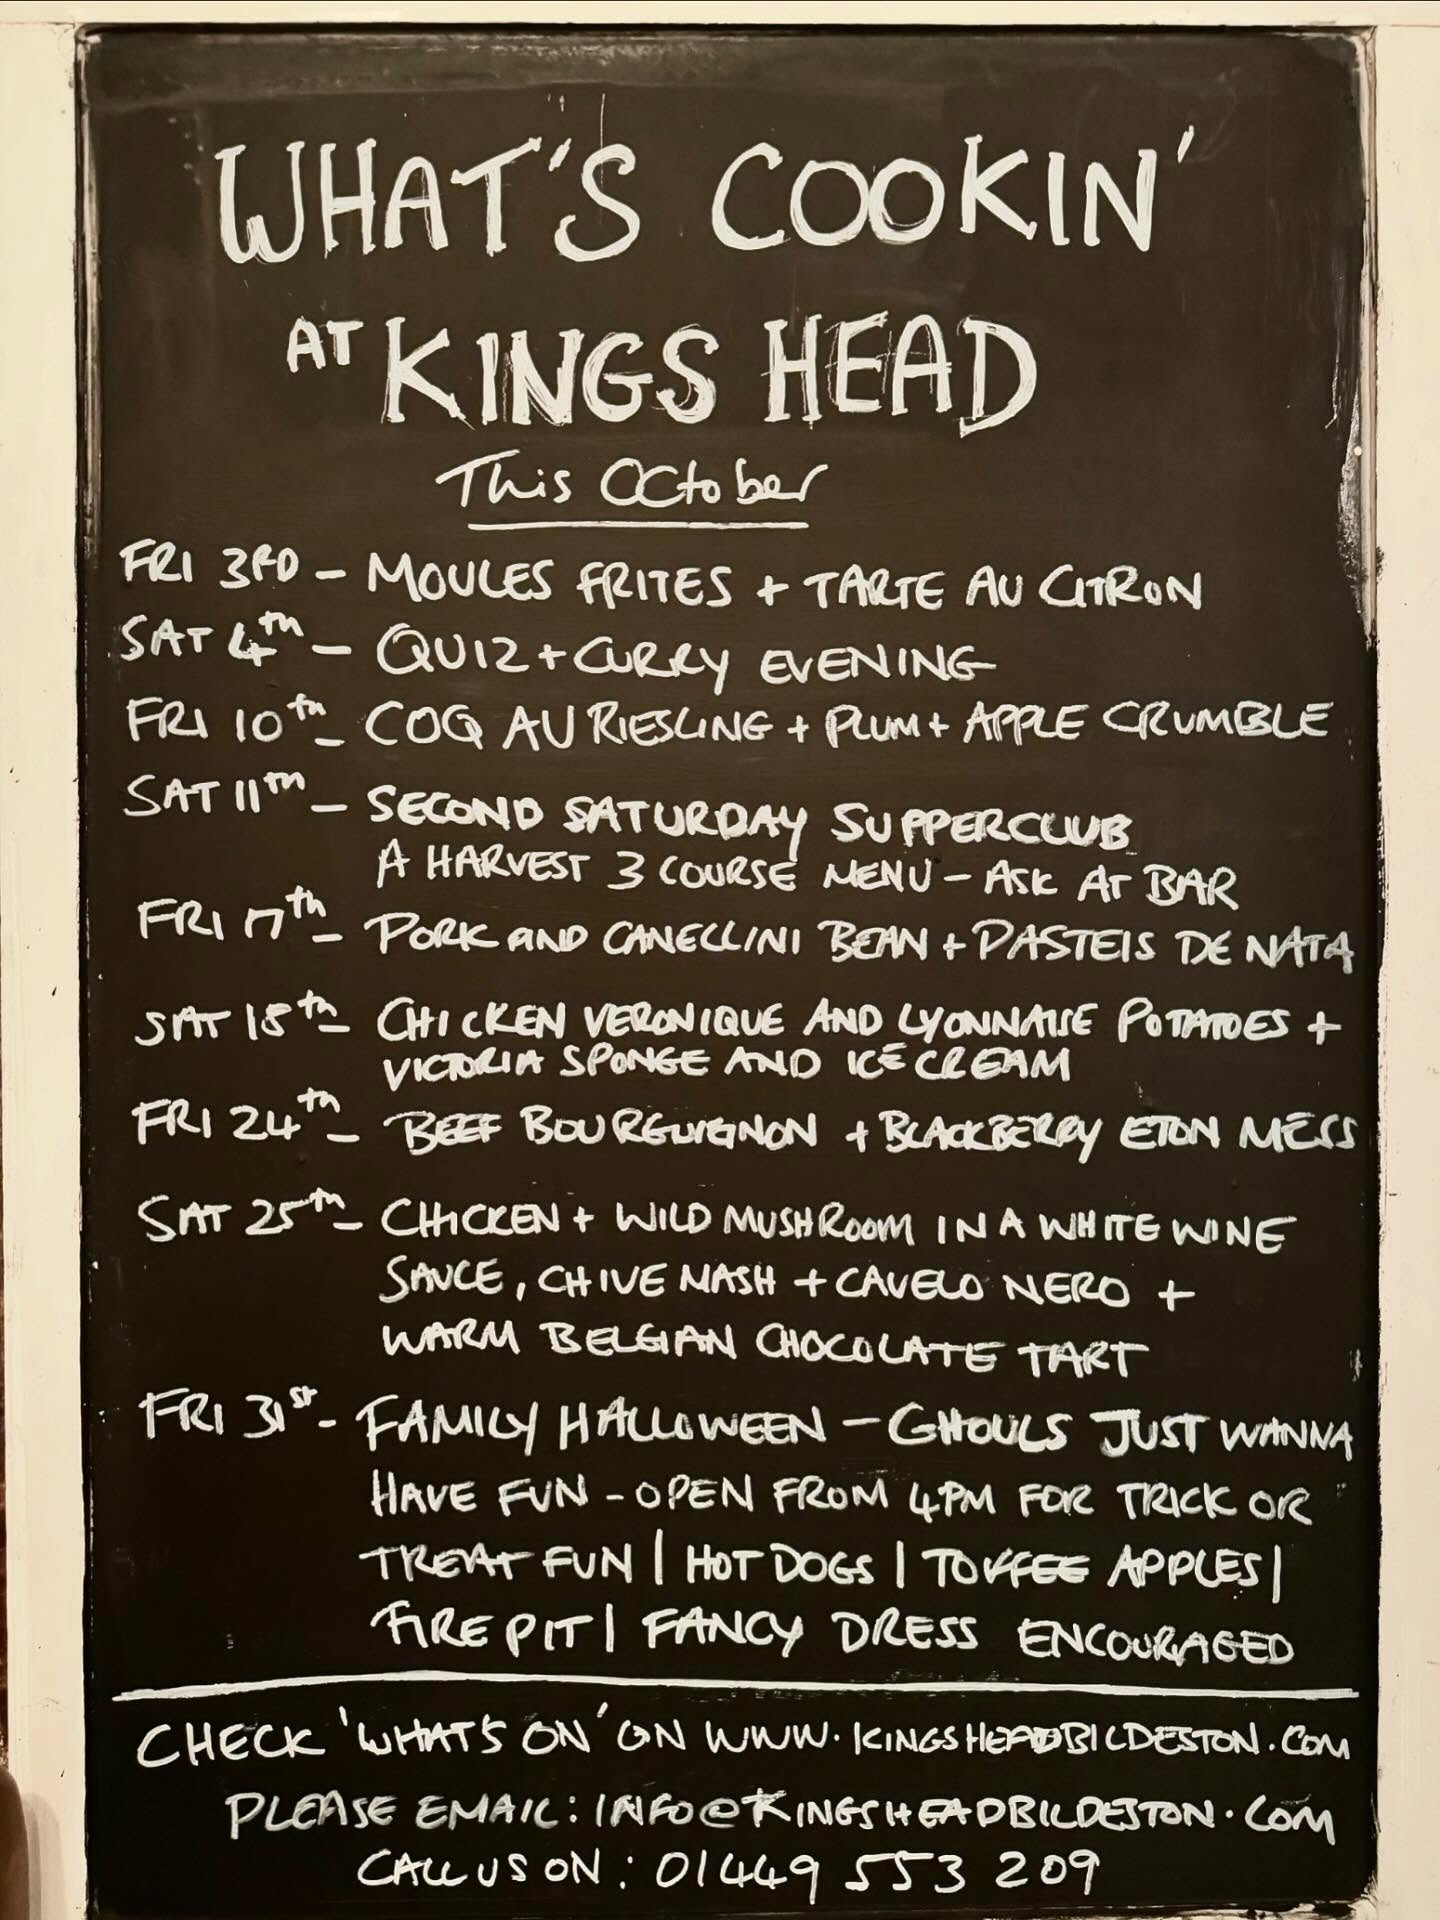 WHAT'S COOKIN'
AT KINGS HEAD
This October
FRI 3RD - MOULES FRITES + TARTE AU CITRON
SAT 4th - QUIZ + CURRY EVENING
FRI 10th - COQ AU RIESLING + PLUM + APPLE CRUMBLE
SAT 11th - SECOND SATURDAY SUPPERCLUB
A HARVEST 3 COURSE MENU - ASK AT BAR
FRI 17th - PORK AND CANELLINI BEAN + PASTEIS DE NATA
SAT 18th - CHICKEN VERONIQUE AND LYONNAISE POTATOES +
VICTORIA SPONGE AND ICE CREAM
FRI 24th - BEEF BOURGUIGNON + BLACKBERRY ETON MESS
SAT 25th - CHICKEN + WILD MUSHROOM IN A WHITE WINE
SAUCE, CHIVE MASH + CAVELO NERO +
WARM BELGIAN CHOCOLATE TART
FRI 31st - FAMILY HALLOWEEN - GHOULS JUST WANNA
HAVE FUN - OPEN FROM 4PM FOR TRICK OR
TREAT FUN | HOT DOGS | TOFFEE APPLES |
FIRE PIT | FANCY DRESS ENCOURAGED
CHECK 'WHAT'S ON' ON WWW.KINGSHEADBILDESTON.COM
PLEASE EMAIL: INFO@KINGSHEADBILDESTON.COM
CALL US ON: 01449 553 209